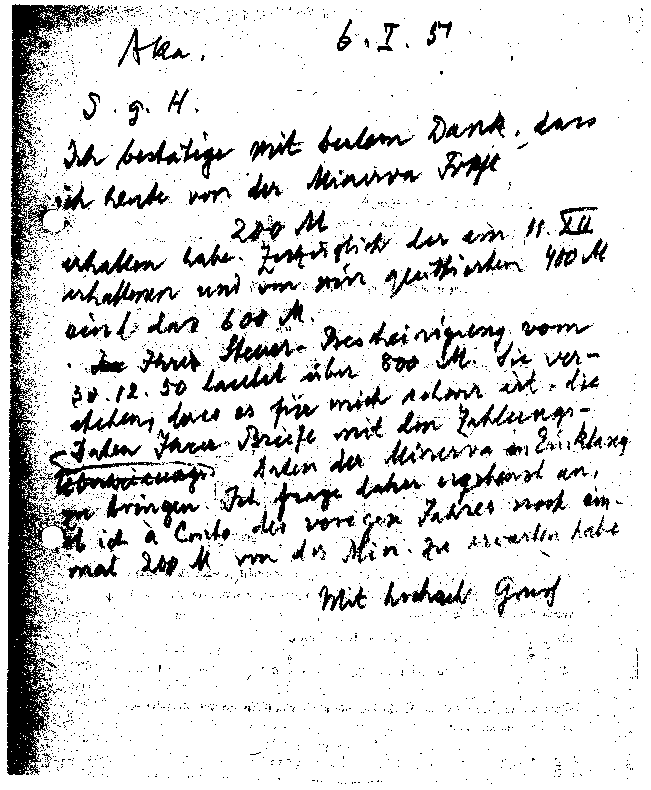 Aka. 6.I.51
S. g. H.
Ich bestätige mit bestem Dank, dass
ich heute von der Minerva
200 M
erhalten habe. Zuzüglich der am 11. XII
erhaltenen und von mir quittierten 400 M
sind das 600 M.
Ihre Steuer-Bescheinigung vom
30.12.50 lautet über 800 M. Sie ver-
stehen, dass es für mich schwer ist, die
Daten Ihrer Briefe mit den Zahlungs-
Daten der Minerva in Einklang
zu bringen. Ich frage daher ergebenst an,
ob ich à Conto des vorigen Jahres noch ein-
mal 200 M von der Min. zu erwarten habe
Mit hochach